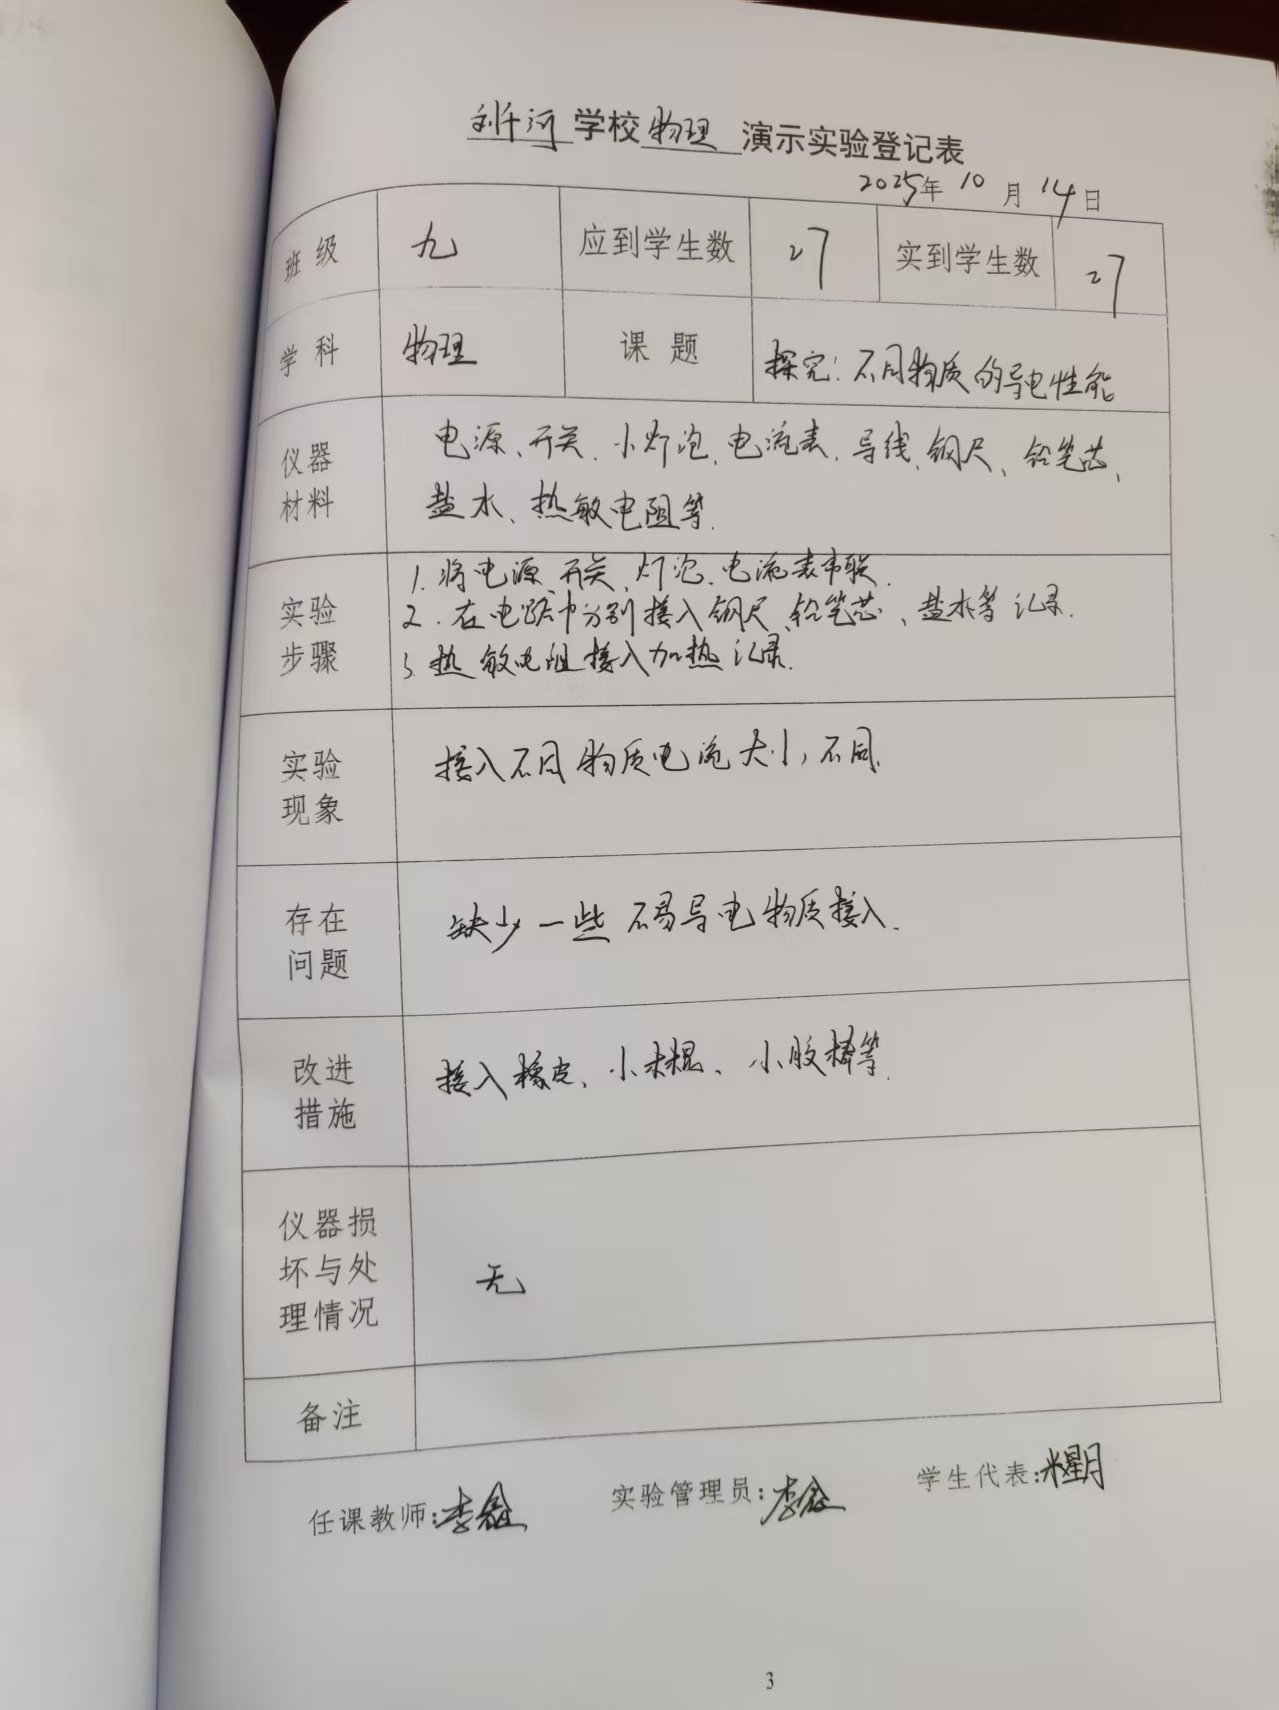 刘千河学校物理演示实验登记表
2025年10月14日
班级 九 应到学生数 27 实到学生数 27
学科 物理 课题 探究:不同物质的导电性能
仪器材料
电源、开关、小灯泡、电流表、导线、钢尺、铅笔芯、
盐水、热敏电阻等.
实验步骤
1.将电源、开关、灯泡、电流表串联.
2.在电路中分别接入钢尺、铅笔芯、盐水等记录.
3.热敏电阻接入加热记录.
实验现象
接入不同物质电流大小不同.
存在问题
缺少一些不易导电物质接入.
改进措施
接入橡皮、小木棍、小胶棒等.
仪器损坏与处理情况
无
备注
任课教师:李鑫 实验管理员:李鑫 学生代表:星月
3